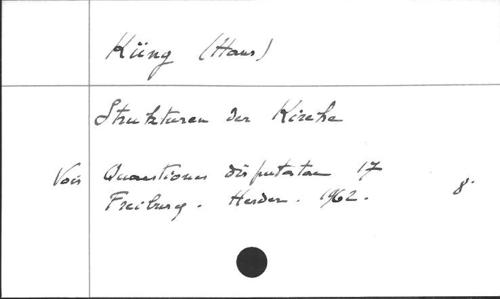 Küng (Hans)
Strukturen der Kirche
Voir Quaestiones disputatae 17
Freiburg. Herder. 1962. 8°